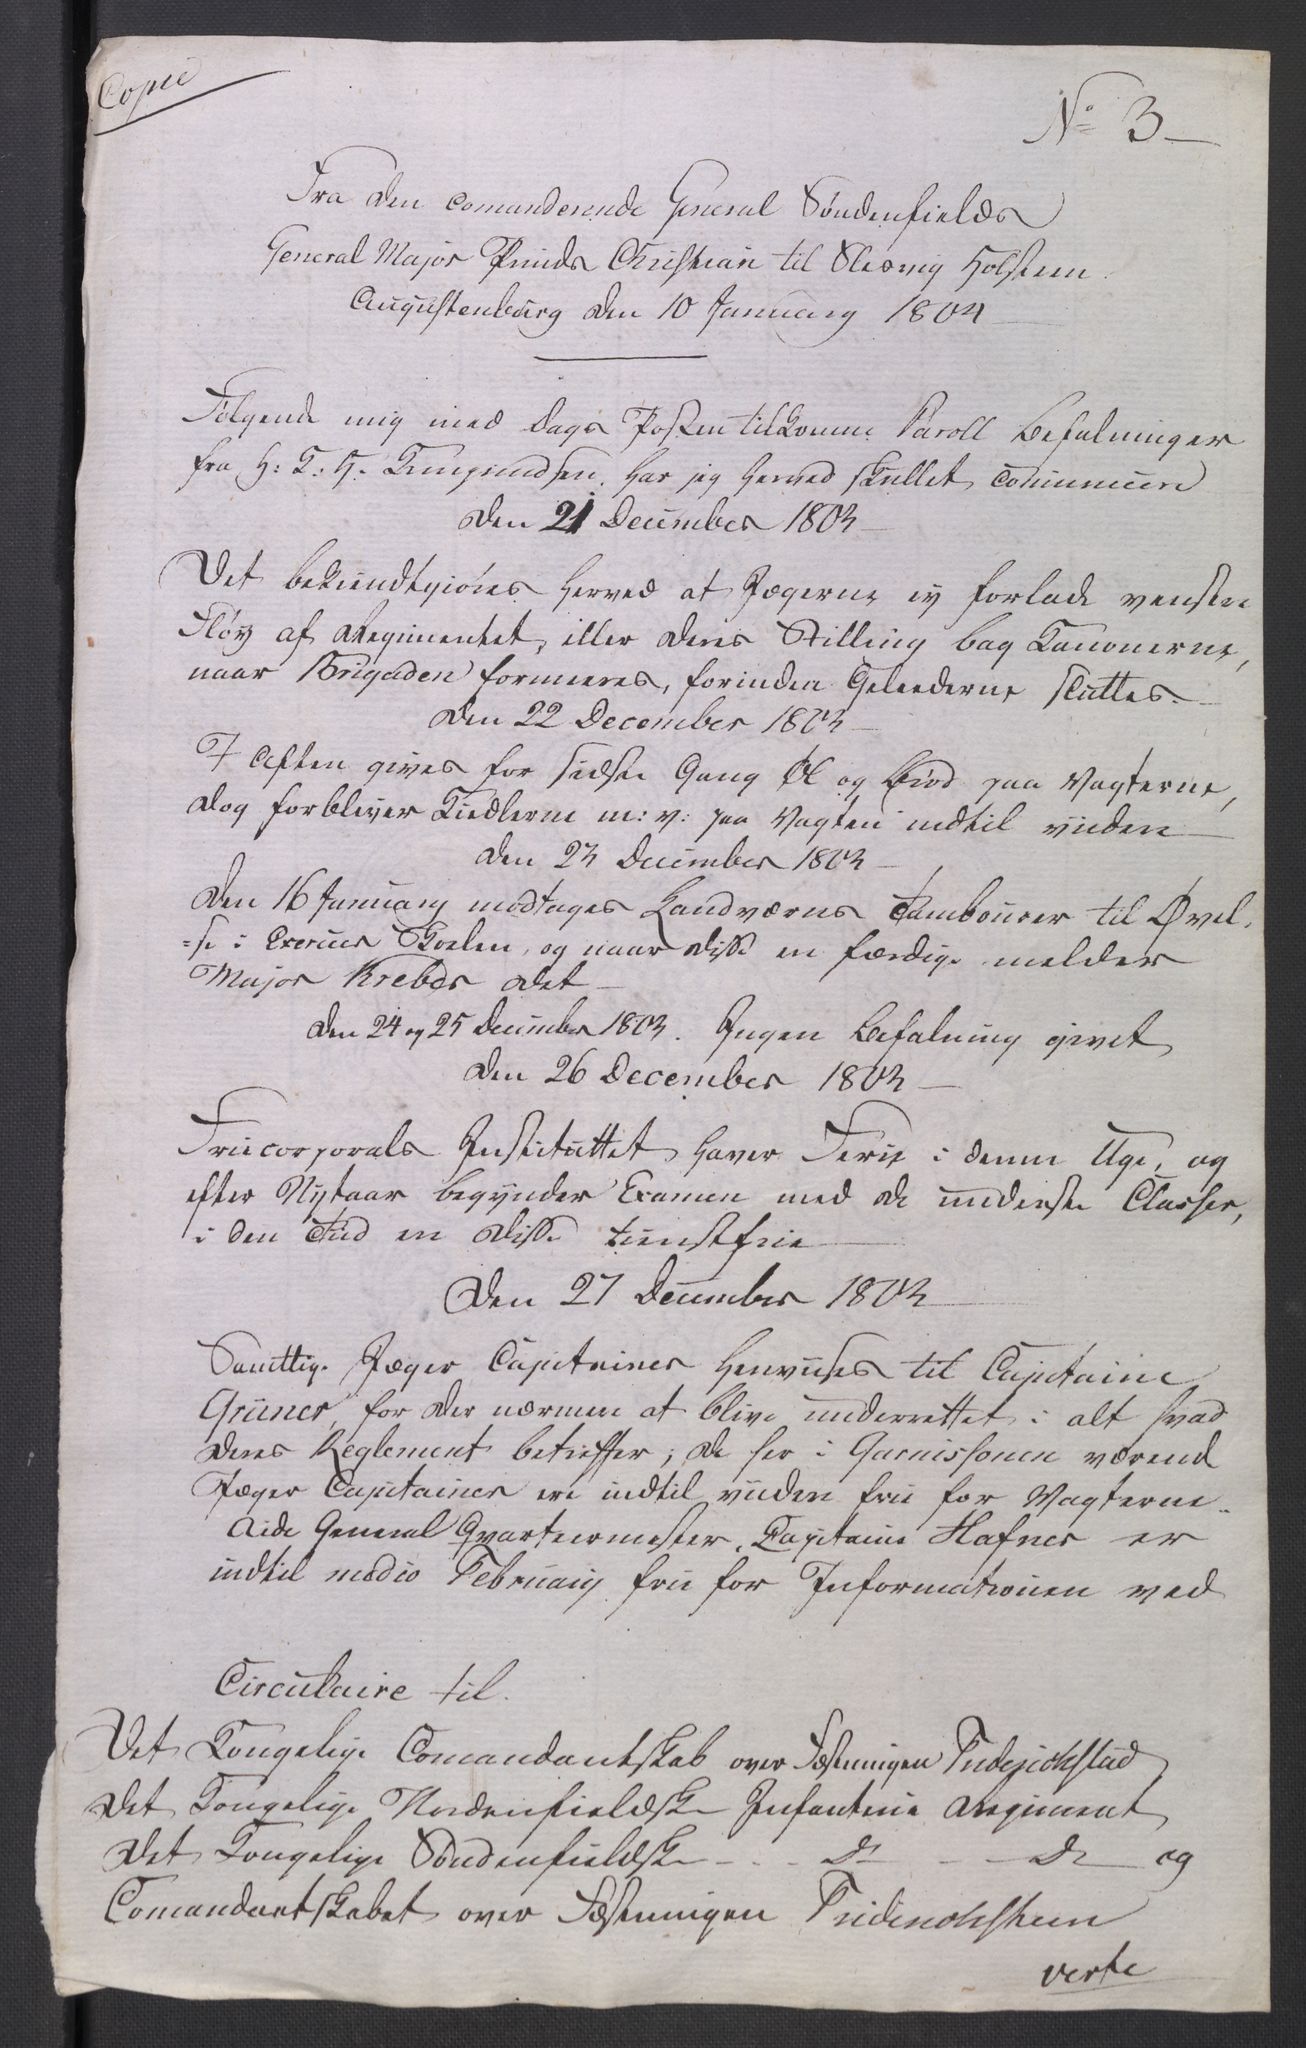 Copie
No 3
Fra den comanderende General Søndenfields
General Major Prinds Christian til Slesvig Holsteen
Augustenburg den 10 January 1804
Følgende mig med Dags Posten tilkomne Paroll Befalninger
fra H: K: H: Kronprindsen, har jeg herved skullet comunicere
Den 21 December 1803
Det bekiendtgiøres herved at Jægerne ey forlade venstre
Fløy af Regimentet, eller deres Stilling bag Canonerne,
naar Brigaden formeeres, forinden Geleederne sluttes.
Den 22 December 1803
I Aften gives for sidste Gang Øl og Brød paa Vagterne,
dog forbliver Kiedlerne m: v: paa Vagten indtil viidere
Den 23 December 1803
Den 16 January modtages Landværns Tambourer til Øvel-
=se i Exercier Skolen, og naar disse ere færdige melder
Major Krebs det
Den 24 og 25 December 1803. Ingen Befalning givet
Den 26 December 1803
Friicorporals Instituttet haver Ferie i denne Uge, og
efter Nytaar begynder Examen med de underste Classer,
i den Tiid ere disse tienstfrie
Den 27 December 1803
Samtlige Jæger Capitainer henviises til Capitaine
Grüner, for der nærmere at blive underrettet i alt hvad
deres Reglement betreffer; de her i Garnissonen værende
Jæger Capitainer ere indtil viidere frie for Vagterne.
Aide General Qvarteermester, Capitaine Hafner er
indtil medio February frie for Informationen ved
Circulaire til.
Det Kongelige Comandantskab over Fæstningen Friderichstad
Det Kongelige Nordenfieldske Infanterie Regiment
Det Kongelige Søndenfieldske - - - D - - D og
Comandantskabet over Fæstningen Friderichsteen
verte